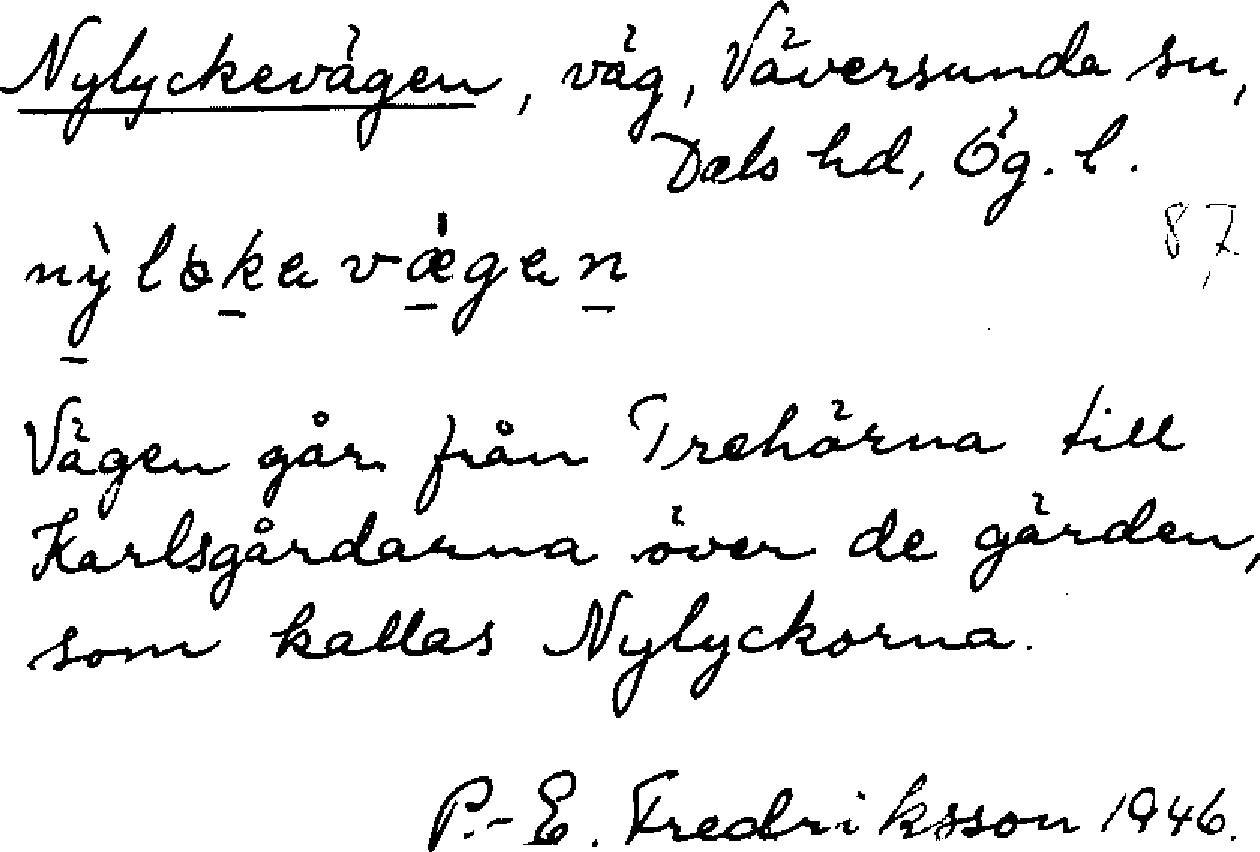 Nylyckevägen, väg, Väversunda sn,
Dals hd, Ög. l.
87
Vägen går från Trehörna till
Karlsgårdarna över de gärden,
som kallas Nylyckorna.
P.-E. Fredriksson 1946.